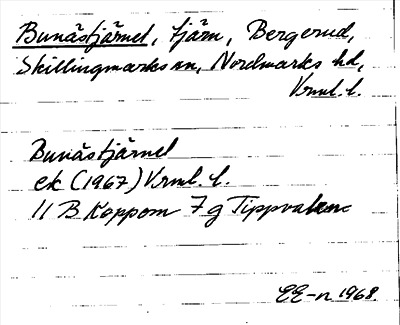 Bunästjärnet, tjärn, Bergerud,
Skillingmarks sn, Nordmarks hd,
Vrml. l.
Bunästjärnet
ek (1967) Vrml. l.
11 B Koppom 7 g Tippvalen
EE-n 1968.